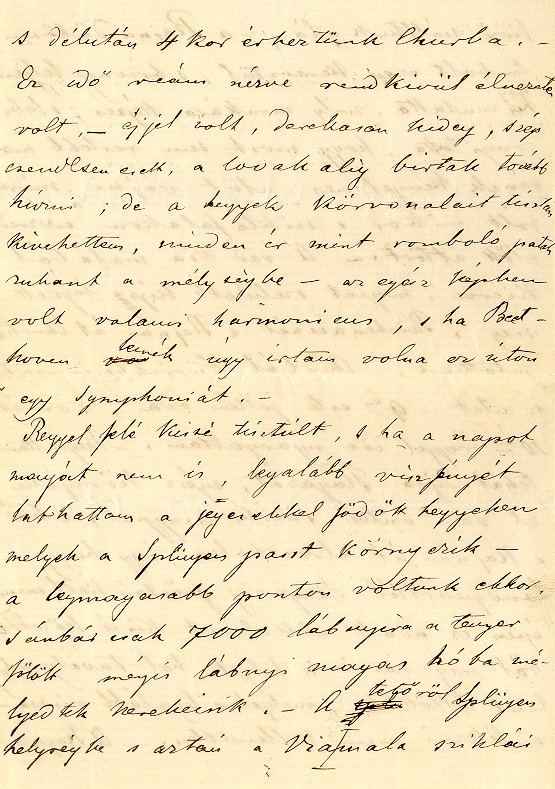 s délután 4kor érheztünk Churba. –
Ez idő reám nézve rendkivül élvezetes
volt, – éjjel volt, derekasan hideg, szép
csendesen esek, a lovak alig birtak tovább
húzni; de a hegyek körvonalait tisztán
kivehettem, minden ér mint romboló patak
rohant a mélységbe – az egész képben
volt valami harmonicus, s ha Beet-
hoven lennék úgy irtam volna ez úton
egy symphoniát. –
Reggel felé kissé tisztúlt, s ha a napot
magát nem is, legalább viszfényét
láthattam a jegesekkel födött hegyeken
melyek a Splügen passt környezik –
a legmagasabb ponton voltunk ekkor.
s ámbár csak 7000 lábnyira a tenger
fölött mégis lábnyi magas hóba mé-
lyedtek kerekeink. – A tetőről Splügen
helységbe s aztán a Viamala sziklái